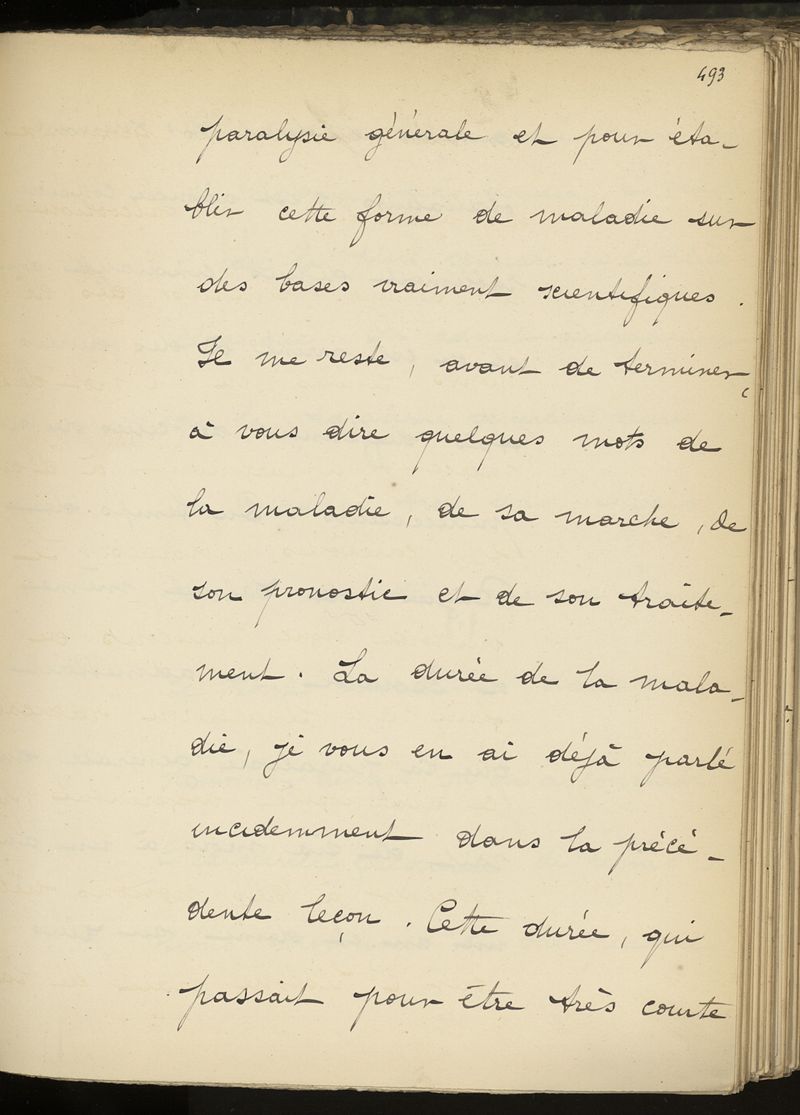 493
paralysie générale et pour éta-
blir cette forme de maladie sur
des bases vraiment scientifiques.
Il me reste, avant de terminer,
à vous dire quelques mots de
la maladie, de sa marche, de
son pronostic et de son traite-
ment. La durée de la mala-
die, je vous en ai déjà parlé
incidemment dans la précé-
dente leçon. Cette durée, qui
passait pour être très courte